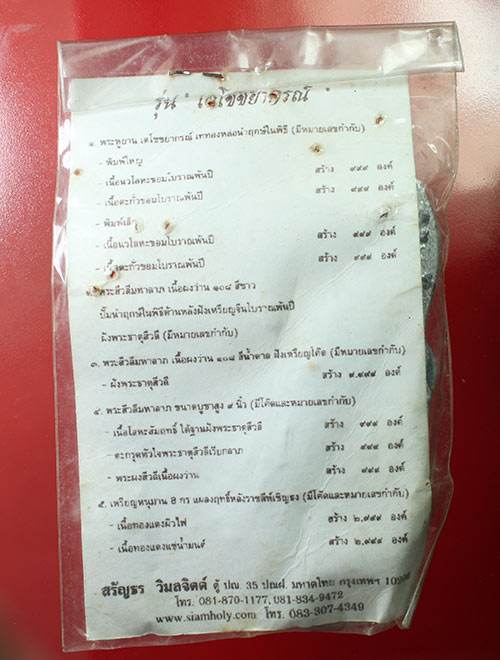 รุ่น " เตโชชยาภรณ์ "
๑. พระหูยาน เตโชชยาภรณ์ เททองหล่อนำฤกษ์ในพิธี (มีหมายเลขกำกับ)
- พิมพ์ใหญ่
- เนื้อนวโลหะขอมโบราณพันปี สร้าง ๙๙๙ องค์
- เนื้อตะกั่วขอมโบราณพันปี สร้าง ๙๙๙ องค์
- พิมพ์เล็ก
- เนื้อนวโลหะขอมโบราณพันปี สร้าง ๙๙๙ องค์
- เนื้อตะกั่วขอมโบราณพันปี สร้าง ๙๙๙ องค์
พระสิวลีมหาลาภ เนื้อผงว่าน ๑๐๘ สีขาว
ปั๊มนำฤกษ์ในพิธีด้านหลังฝังเหรียญจีนโบราณพันปี
ฝังพระธาตุสิวลี (มีหมายเลขกำกับ)
๓. พระสิวลีมหาลาภ เนื้อผงว่าน ๑๐๘ สีน้ำตาล ฝังเหรียญโค๊ด (มีหมายเลขกำกับ)
- ฝังพระธาตุสิวลี สร้าง ๙,๙๙๙ องค์
๔. พระสิวลีมหาลาภ ขนาดบูชาสูง ๙ นิ้ว (มีโค๊ดและหมายเลขกำกับ)
- เนื้อโลหะสัมฤทธิ์ ใต้ฐานฝังพระธาตุสิวลี สร้าง ๙๙๙ องค์
- ตะกรุดหัวใจพระธาตุสิวลีเรียกลาภ สร้าง ๙๙๙ องค์
- พระผงสิวลีเนื้อผงว่าน สร้าง ๙๙๙ องค์
๕. เหรียญหนุมาน 8 กร แผลงฤทธิ์หลังราชสีห์เชิญธง (มีโค๊ดและหมายเลขกำกับ)
- เนื้อทองแดงผิวไฟ สร้าง ๒,๙๙๙ องค์
- เนื้อทองแดงแช่น้ำมนต์ สร้าง ๒,๙๙๙ องค์
สรัญธร วิมลจิตต์ ตู้ ปณ. 35 ปณฝ. มหาดไทย กรุงเทพฯ
โทร. 081-870-1177, 081-834-9472
www.siamholy.com โทร. 083-307-4349